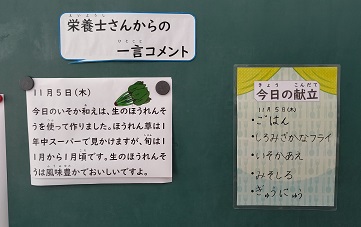 栄養士さんからの
一言コメント
11月5日(木)
今日のいそか和えは、生のほうれんそ
うを使って作りました。ほうれん草は1
年中スーパーで見かけますが、旬は1
1月から1月頃です。生のほうれんそ
うは風味豊かでおいしいですよ。
今日の献立
11月5日(木)
・ごはん
・しろみざかなフライ
・いそかあえ
・みそしる
・ぎゅうにゅう